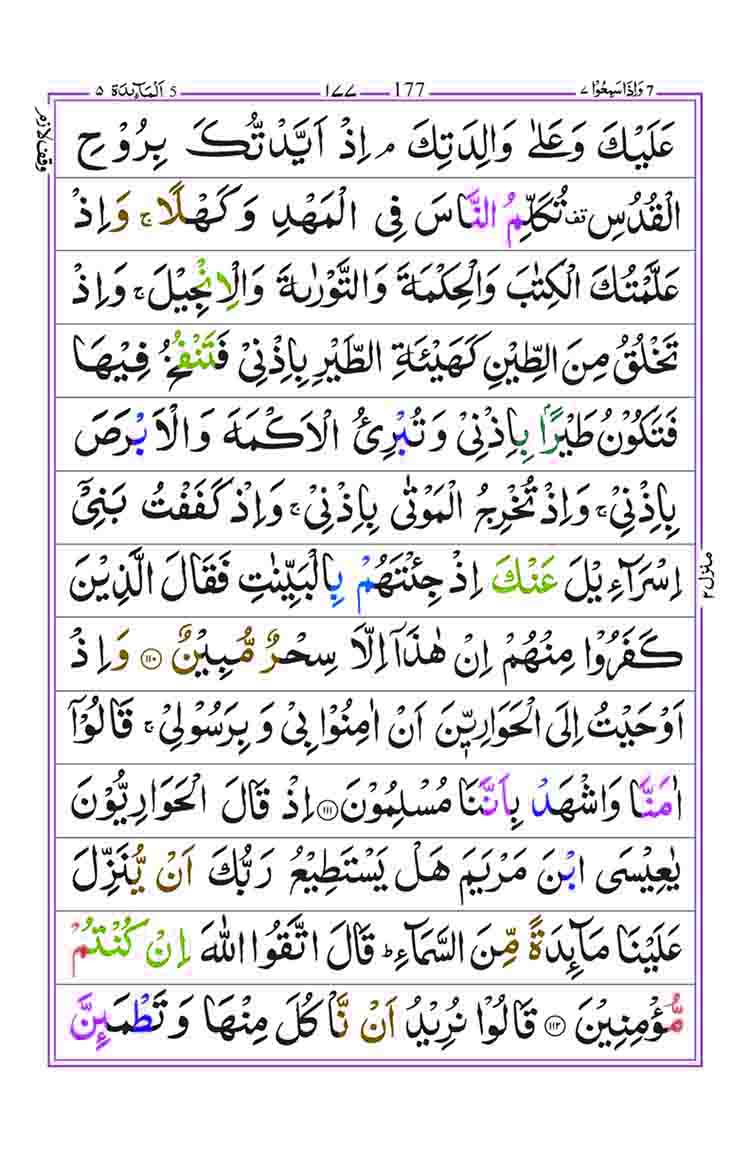 5 اَلْمَآىِٕدَة ۵ 177 ۱۷۷ 7 وَاِذَا سَمِعُوْا ۷
وقف لازم
عَلَيْكَ وَعَلٰى وَالِدَتِكَ ۘ اِذْ اَيَّدْتُّكَ بِرُوْحِ
الْقُدُسِ قف تُكَلِّمُ النَّاسَ فِى الْمَهْدِ وَكَهْلًا ۚ وَاِذْ
عَلَّمْتُكَ الْكِتٰبَ وَالْحِكْمَةَ وَالتَّوْرٰىةَ وَالْاِنْجِيْلَ ۚ وَاِذْ
تَخْلُقُ مِنَ الطِّيْنِ كَهَيْئَةِ الطَّيْرِ بِاِذْنِىْ فَتَنْفُخُ فِيْهَا
فَتَكُوْنُ طَيْرًۢا بِاِذْنِىْ وَتُبْرِئُ الْاَكْمَهَ وَالْاَبْرَصَ
بِاِذْنِىْ ۚ وَاِذْ تُخْرِجُ الْمَوْتٰى بِاِذْنِىْ ۚ وَاِذْ كَفَفْتُ بَنِىْۤ
اِسْرَآءِيْلَ عَنْكَ اِذْ جِئْتَهُمْ بِالْبَيِّنٰتِ فَقَالَ الَّذِيْنَ
كَفَرُوْا مِنْهُمْ اِنْ هٰذَاۤ اِلَّا سِحْرٌ مُّبِيْنٌ ۱۱۰ وَاِذْ
اَوْحَيْتُ اِلَى الْحَوَارِيّٖنَ اَنْ اٰمِنُوْا بِىْ وَبِرَسُوْلِىْ ۚ قَالُوْۤا
اٰمَنَّا وَاشْهَدْ بِاَنَّنَا مُسْلِمُوْنَ ۱۱۱ اِذْ قَالَ الْحَوَارِيُّوْنَ
يٰعِيْسَى ابْنَ مَرْيَمَ هَلْ يَسْتَطِيْعُ رَبُّكَ اَنْ يُّنَزِّلَ
عَلَيْنَا مَآىِٕدَةً مِّنَ السَّمَآءِ ؕ قَالَ اتَّقُوا اللّٰهَ اِنْ كُنْتُمْ
مُّؤْمِنِيْنَ ۱۱۲ قَالُوْا نُرِيْدُ اَنْ نَّاْكُلَ مِنْهَا وَتَطْمَىِٕنَّ
منزل ۲